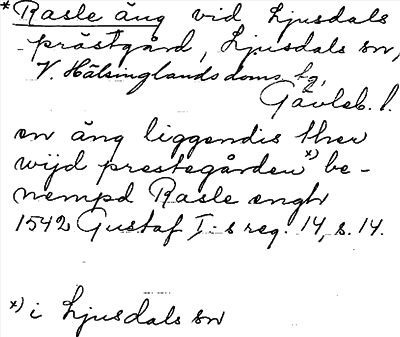 * Rasle äng vid Ljusdals
prästgård, Ljusdals sn,
V. Hälsinglands doms. hg,
Gävleb. l.
en äng liggendis ther
wijd prestegården *) be-
nempd Rasle engh
1542 Gustaf I:s reg. 14, s. 14.
*) i Ljusdals sn